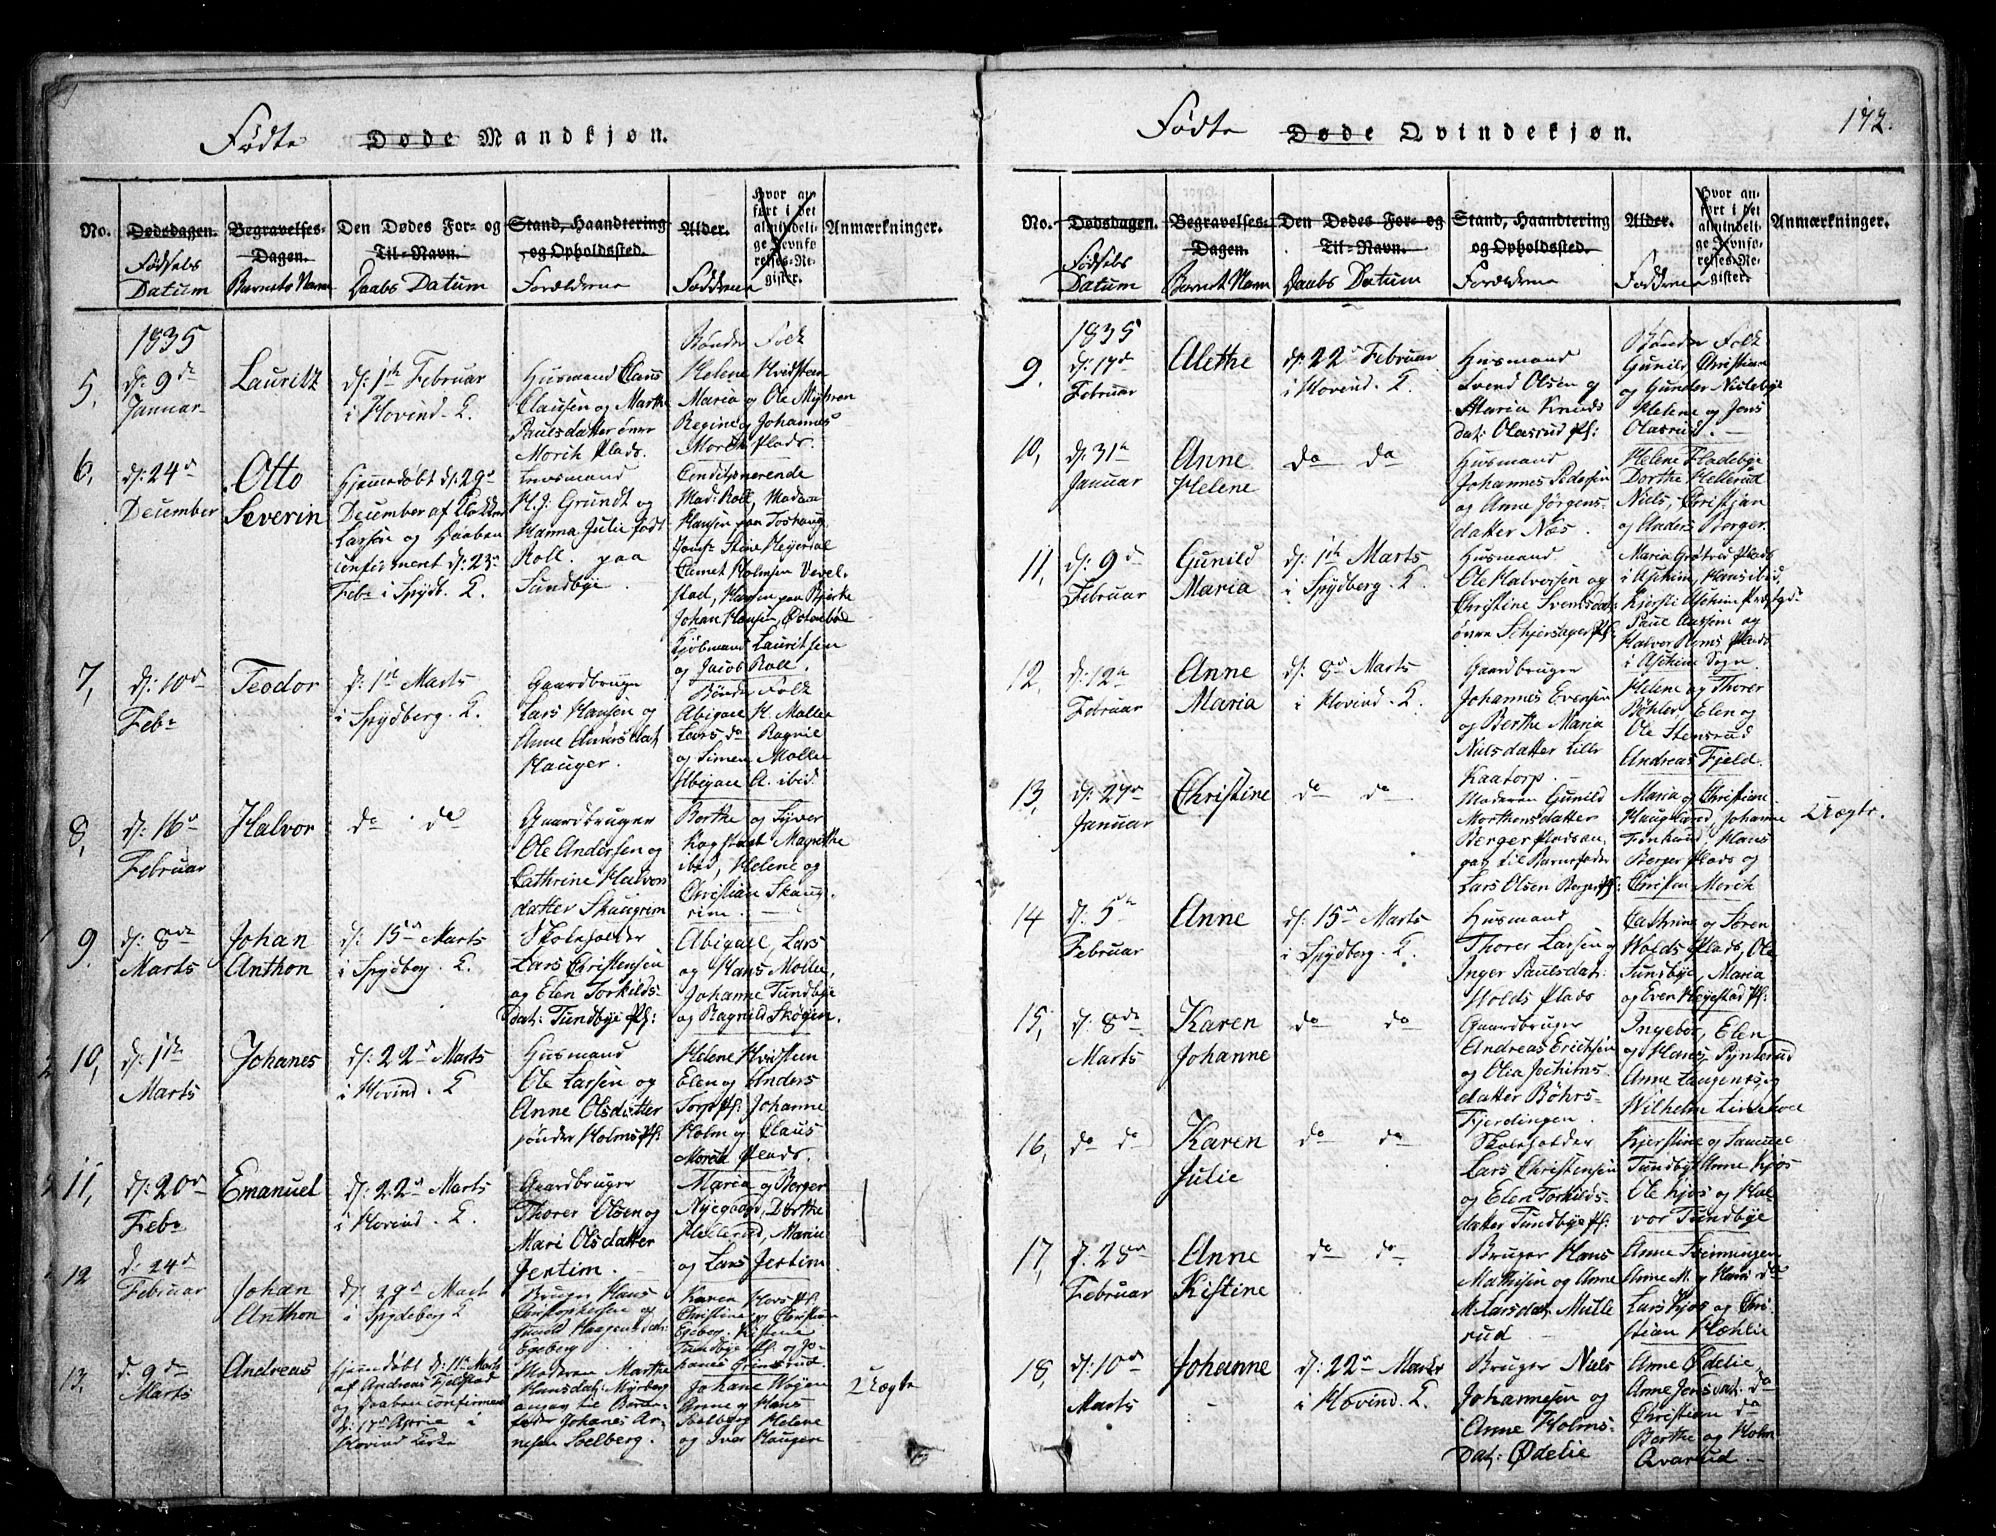 Fødte Døde Mandkjøn.
No.
Dødsdagen.
Fødsels
Datum
Begravelses-
Dagen.
Barnets Navn
Den Dødes For- og
Til-Navn.
Daabs Datum
Stand, Haandtering
og Opholdssted.
Forældrene
Alder.
Fadderne
Hvor an-
ført i det
almindeli-
ge Jevnfø-
relses-Re-
gister.
Anmærkninger.
1835
5.
d: 9de
Januar
Lauritz
d: 1ste Februar
i Hovind. K.
Husmand Claus
Clausen og Marthe
Paulsdatter övre
Morth Plads.
Bönder Folk
Helene Hvidsteen
Maria og Ole Myhren
Regine og Johannes
Morth Plads.
6.
d: 24de
December
Otto
Severin
Hjemmedöbt d: 29de
December af Klokker
Larsen og Daaben
confirmeret d: 23de
Febr i Spydb. K.
Lensmand
H. J. Grundt og
Hanna Julie född
Roll. paa
Sundbye
Conditionerende
Mad: Roll, Madam
Hansen paa Toshaug
Jomfr Stine Heyerdal
Holmsen Vevel-
stad, Hansen paa Bjerke
Johan Hansen,
Kjöbmand Lauritsen
og Jacob Roll.
7,
d: 10de
Febr
Teodor
d: 1ste Marts
i Spydberg. K.
Gaardbruger
Lars Hansen og
Anne Andersdat
Hauger.
Bönder Folk
Abigael H. Moller
Lars do Ragnil
og Simen Moller
Abigael A. ibid.
8,
d: 16de
Februar
Halvor
do do
Gaardbruger
Ole Andersen og
Cathrine Halvors
datter Skaugrim
Berthe og Syver
Kogstad Magrethe
ibid, Helene og
Christian Skaug-
rim.
9.
d: 8de
Marts
Johan
Anthon
d: 15de Marts
i Spydberg. K.
Skoleholder
Lars Christensen
og Elen Torkilds-
Dat: Tundbye Pl:
Abigael, Lars
og Hans Moller
Johanne Tundbye
og Ragnild Skögen.
10,
d: 1ste
Marts
Johanes
d: 22de Marts
i Hovind. K
Husmand
Ole Larsen og
Anne Olsdatter
sönder Holms Pl:
Helene Hvidsteen
Elen og Anders
Torp Pl: Johanne
Holm og Claus
Morth Plads.
11,
d: 20de
Febr
Emanuel
d: 22de Marts
i Hovind. K.
Gaardbruger
Thorer Olsen og
Mari Olsdatter
Jertim.
Maria og Borger
Nyegaard, Dorthe
Hellerud, Marie
og Lars Jertim.
12
d: 24de
Februar
Johan
Anthon
d: 29de Mart
i Spydeberg K
Bruger Hans
Christophersen og
Gunild Haagensdat:
Egeberg
Karen Hors Pl:
Christine og Christian
Egeberg. Kistene
Tundbye Pl. og Jo-
hanes Grimsrud.
13.
d. 9de
Marts
Andreas
Hjemdöbt d: 11te Marts
af Andreas Fjelstad
og Daaben confirmeret
d: 17de Aprie i
Hovind Kirke
Moderen Marthe
Hansdat: Myrberg
angav til Barne-
fader Johanes Ar-
nesen Solberg.
Johane Wogen
Anne og Hans
Soelberg Helene
og Iver Haugen
Uægte
Fødte Døde Qvindekjøn.
172.
No.
Dødsdagen.
Fødsels
Datum
Begravelses-
Dagen.
Barnets Navn
Den Dødes For- og
Til-Navn.
Daabs Datum
Stand, Haandtering
og Opholdssted.
Forældrene
Alder.
Fadderne
Hvor an-
ført i det
almindeli-
ge Jevnfø-
relses-Re-
gister.
Anmærkninger.
1835
9.
d: 17de
Februar
Alethe
d: 22de Februar
i Hovind. K.
Husmand
Svend Olsen og
Maria Knuds
dat: Olasrud Pl:
Bönder Folk
Gunild, Christian
og Gunder Nielebye
Helene og Jens
Olasrud.
10,
d: 31te
Januar
Anne
Helene
do do
Husmand
Johannes Pedersen
og Anne Jörgens-
datter Næs.
Helene Fladebye
Dorthe Hellerud
Niels, Christian
og Anders Borger.
11,
d: 9de
Februar
Gunild
Maria
d: 1ste Marts
i Spydberg. K.
Husmand
Ole Halvorsen og
Christine Svensdat:
övre Schjersager Pl:
Maria Gröterud Plads
i Aschim, Hans ibid,
Kjersti Aschim Præstgd:
Paul Aassen og
Halvor Roms Plads
i Aschim Sogn.
12.
d: 12te
Februar
Anne
Maria
d: 8de Marts
i Hovind. K.
Gaardbruger
Johannes Evensen
og Berthe Maria
Nielsdatter Lille
Kaatorp.
Helene og Thorer
Böhler, Elen og
Ole Stensrud
Andreas Fjeld.
13,
d: 27de
Januar
Christine
do do
Moderen Gunild
Morthensdatter
Berger Pladsan-
gav til Barnefader
Lars Olsen Berger Pl:
Maria og Christian
Haugaard, Johanne
Finhund, Hans
Berger Plads og
Christen Morth
Uægte.
14
d: 5te
Februar
Anne
d: 15de Marts
i Spydberg. K.
Husmand
Thorer Larsen og
Inger Paulsdat:
Wolds Plads
Cathrine og Sören
Wolds Plads, Ole
Tundbye, Maria
og Even Heyestad Pl:
15,
d: 8de
Marts
Karen
Johanne
do do
Gaardbruger
Andreas Erichsen
og Olia Jochims-
datter Böhrs-
Fjerdingen.
Ingebor, Elen
og Hans Synderud
Anne Laugenes, og
Wilhelm Lindhoel
16,
do do
Karen
Julie
do do
Skoleholder
Lars Christensen
og Elen Torkilds-
datter Tundbye Pl:
Kjerstine og Samuel
Tundbye Anne Kjos
Ole Kjos og Hal-
vor Tundbye
17,
d. 28de
Februar
Anne
Kistine
do do
Bruger Hans
Mathisen og Anne
M. Larsdat, Mulle
rud
Anne Skinningen
Anne M. og Hans do
Lars Kjos og Chri-
stian Mæhlie
18,
d: 10de
Marts
Johanne
d: 22de Marts
i Hovind. K.
Bruger Niels
Johannesen og
Anne Holms-
Dat: Ödelie
Anne Ödelie,
Anne Jensdat. do
Christian do
Berthe og Holm
Qvarud